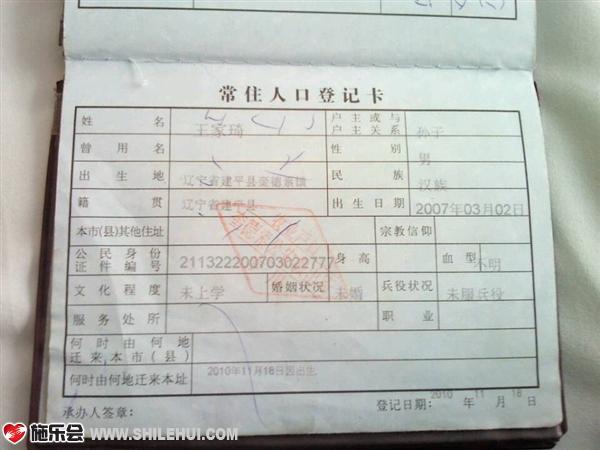 常住人口登记卡
姓名 王家琦 户主或与户主关系 孙子
曾用名 性别 男
出生地 辽宁省建平县奎德素镇 民族 汉族
籍贯 辽宁省建平县 出生日期 2007年03月02日
本市(县)其他住址 宗教信仰
公民身份证件编号 211322200703022777 身高 血型 不明
文化程度 未上学 婚姻状况 未婚 兵役状况 未服兵役
服务处所 职业
何时由何地迁来本市(县)
何时由何地迁来本址 2010年11月18日因出生
承办人签章: 登记日期: 2010年11月18日
施乐会 WWW.SHILEHUI.COM